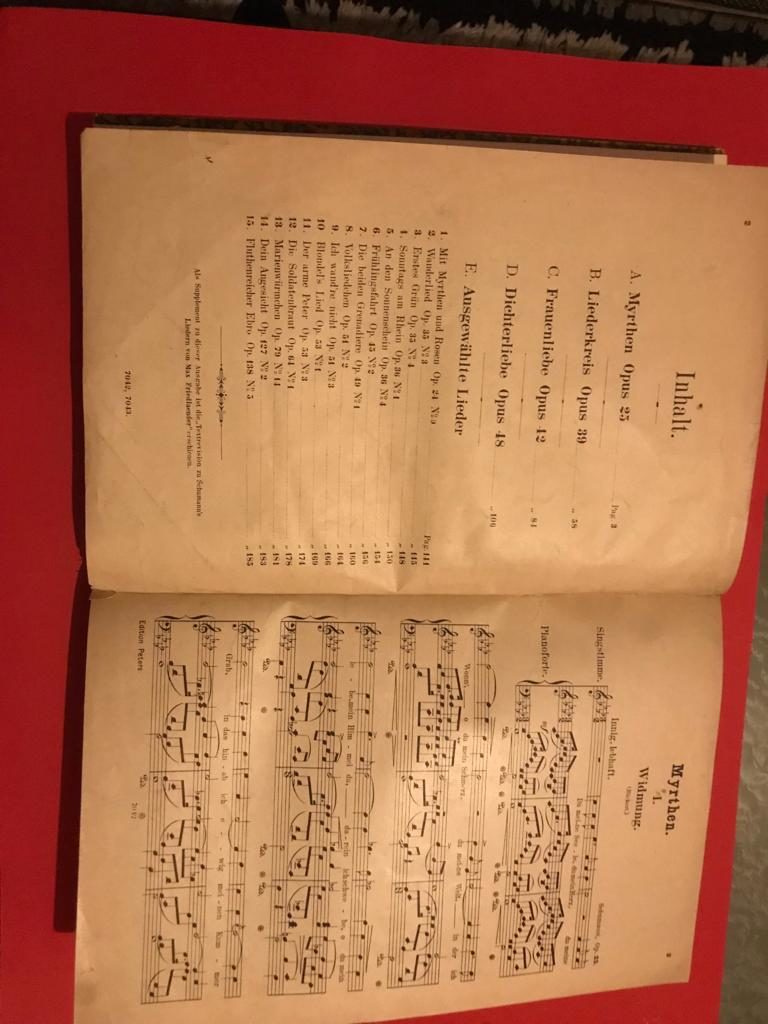 2
Inhalt.
A. Myrthen Opus 25 Pag. 3
B. Liederkreis Opus 39 „ 58
C. Frauenliebe Opus 42 „ 84
D. Dichterliebe Opus 48 „ 106
E. Ausgewählte Lieder
1. Mit Myrthen und Rosen Op. 24 No 9 Pag. 141
2. Wanderlied Op. 35 No 3 „ 145
3. Erstes Grün Op. 35 No 4 „ 148
4. Sonntags am Rhein Op. 36 No 1 „ 150
5. An den Sonnenschein Op. 36 No 4 „ 154
6. Frühlingsfahrt Op. 45 No 2 „ 156
7. Die beiden Grenadiere Op. 49 No 1 „ 160
8. Volksliedchen Op. 51 No 2 „ 164
9. Ich wand're nicht Op. 51 No 3 „ 166
10. Blondel's Lied Op. 53 No 1 „ 169
11. Der arme Peter Op. 53 No 3 „ 174
12. Die Soldatenbraut Op. 64 No 1 „ 178
13. Marienwürmchen Op. 79 No 14 „ 181
14. Dein Angesicht Op. 127 No 2 „ 183
15. Fluthenreicher Ebro Op. 138 No 5 „ 185
Als Supplement zu dieser Ausgabe ist die „Textrevision zu Schumann's
Liedern von Max Friedlaender“ erschienen.
7042, 7043.
3
Myrthen.
1.
Widmung.
(Rückert.)
Schumann, Op. 25.
Innig, lebhaft.
Singstimme.
Du meine See - le, du mein Herz, du meine
Pianoforte.
Wonn', o du mein Schmerz, du meine Welt, in der ich
le - be, mein Him - mel du, da - rein ich schwe - be, o du mein
Grab, in das hin - ab ich e - wig mei - nen Kum - mer
Edition Peters.